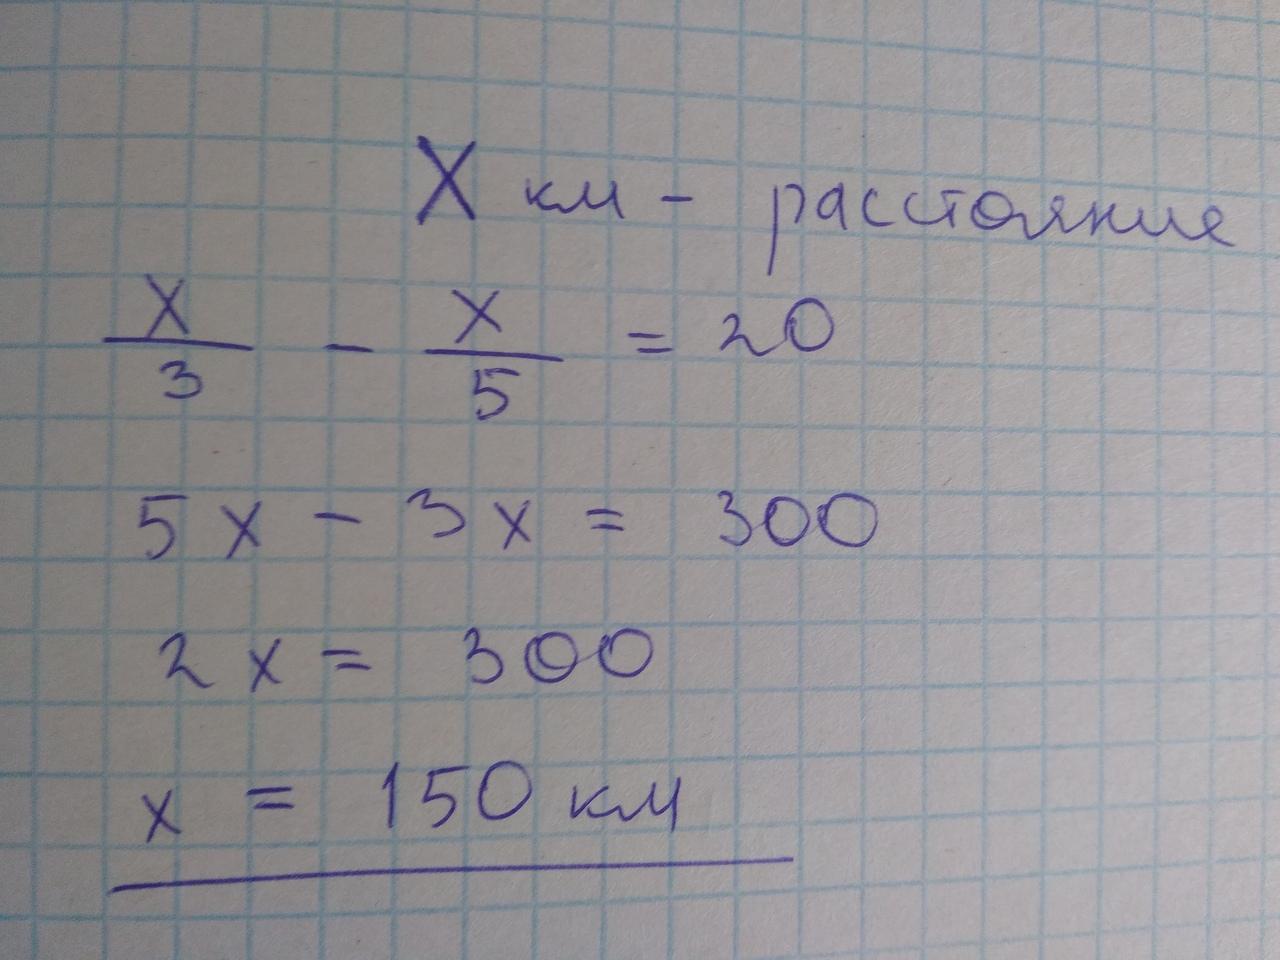 X км - расстояние
x/3 - x/5 = 20
5x - 3x = 300
2x = 300
x = 150 км